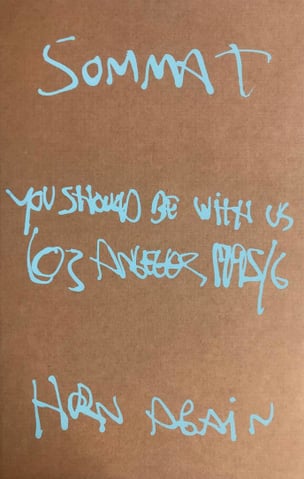 SOMMAT
YOU SHOULD BE WITH US
LOS ANGELES, 1995/6
HORN AGAIN